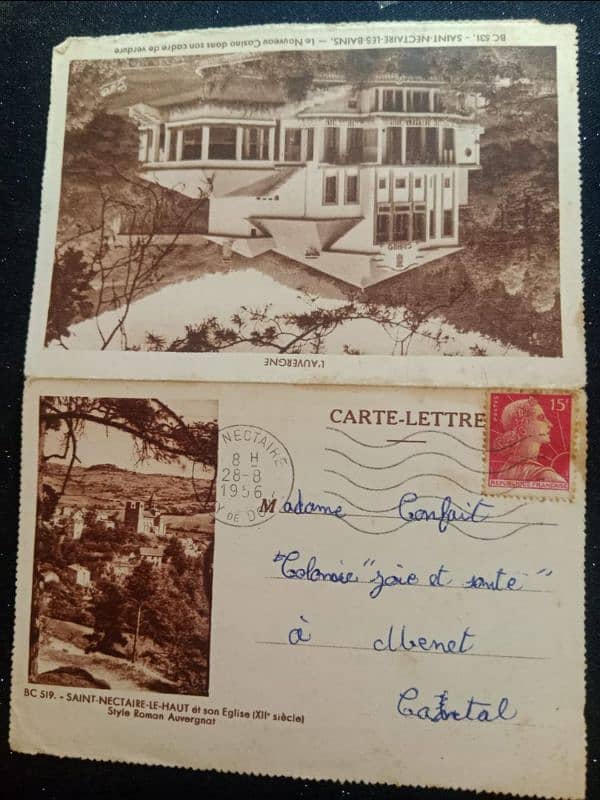 BC 531. - SAINT-NECTAIRE-LES-BAINS. - Le Nouveau Casino dans son cadre de verdure
L'AUVERGNE
CARTE-LETTRE
POSTES 15F
REPUBLIQUE FRANÇAISE
NECTAIRE
8 H
28-8
1956
DE DO
Madame Confait
"Colonie "joie et santé"
à Menet
Cantal
BC 519. - SAINT-NECTAIRE-LE-HAUT et son Eglise (XIIe siècle)
Style Roman Auvergnat